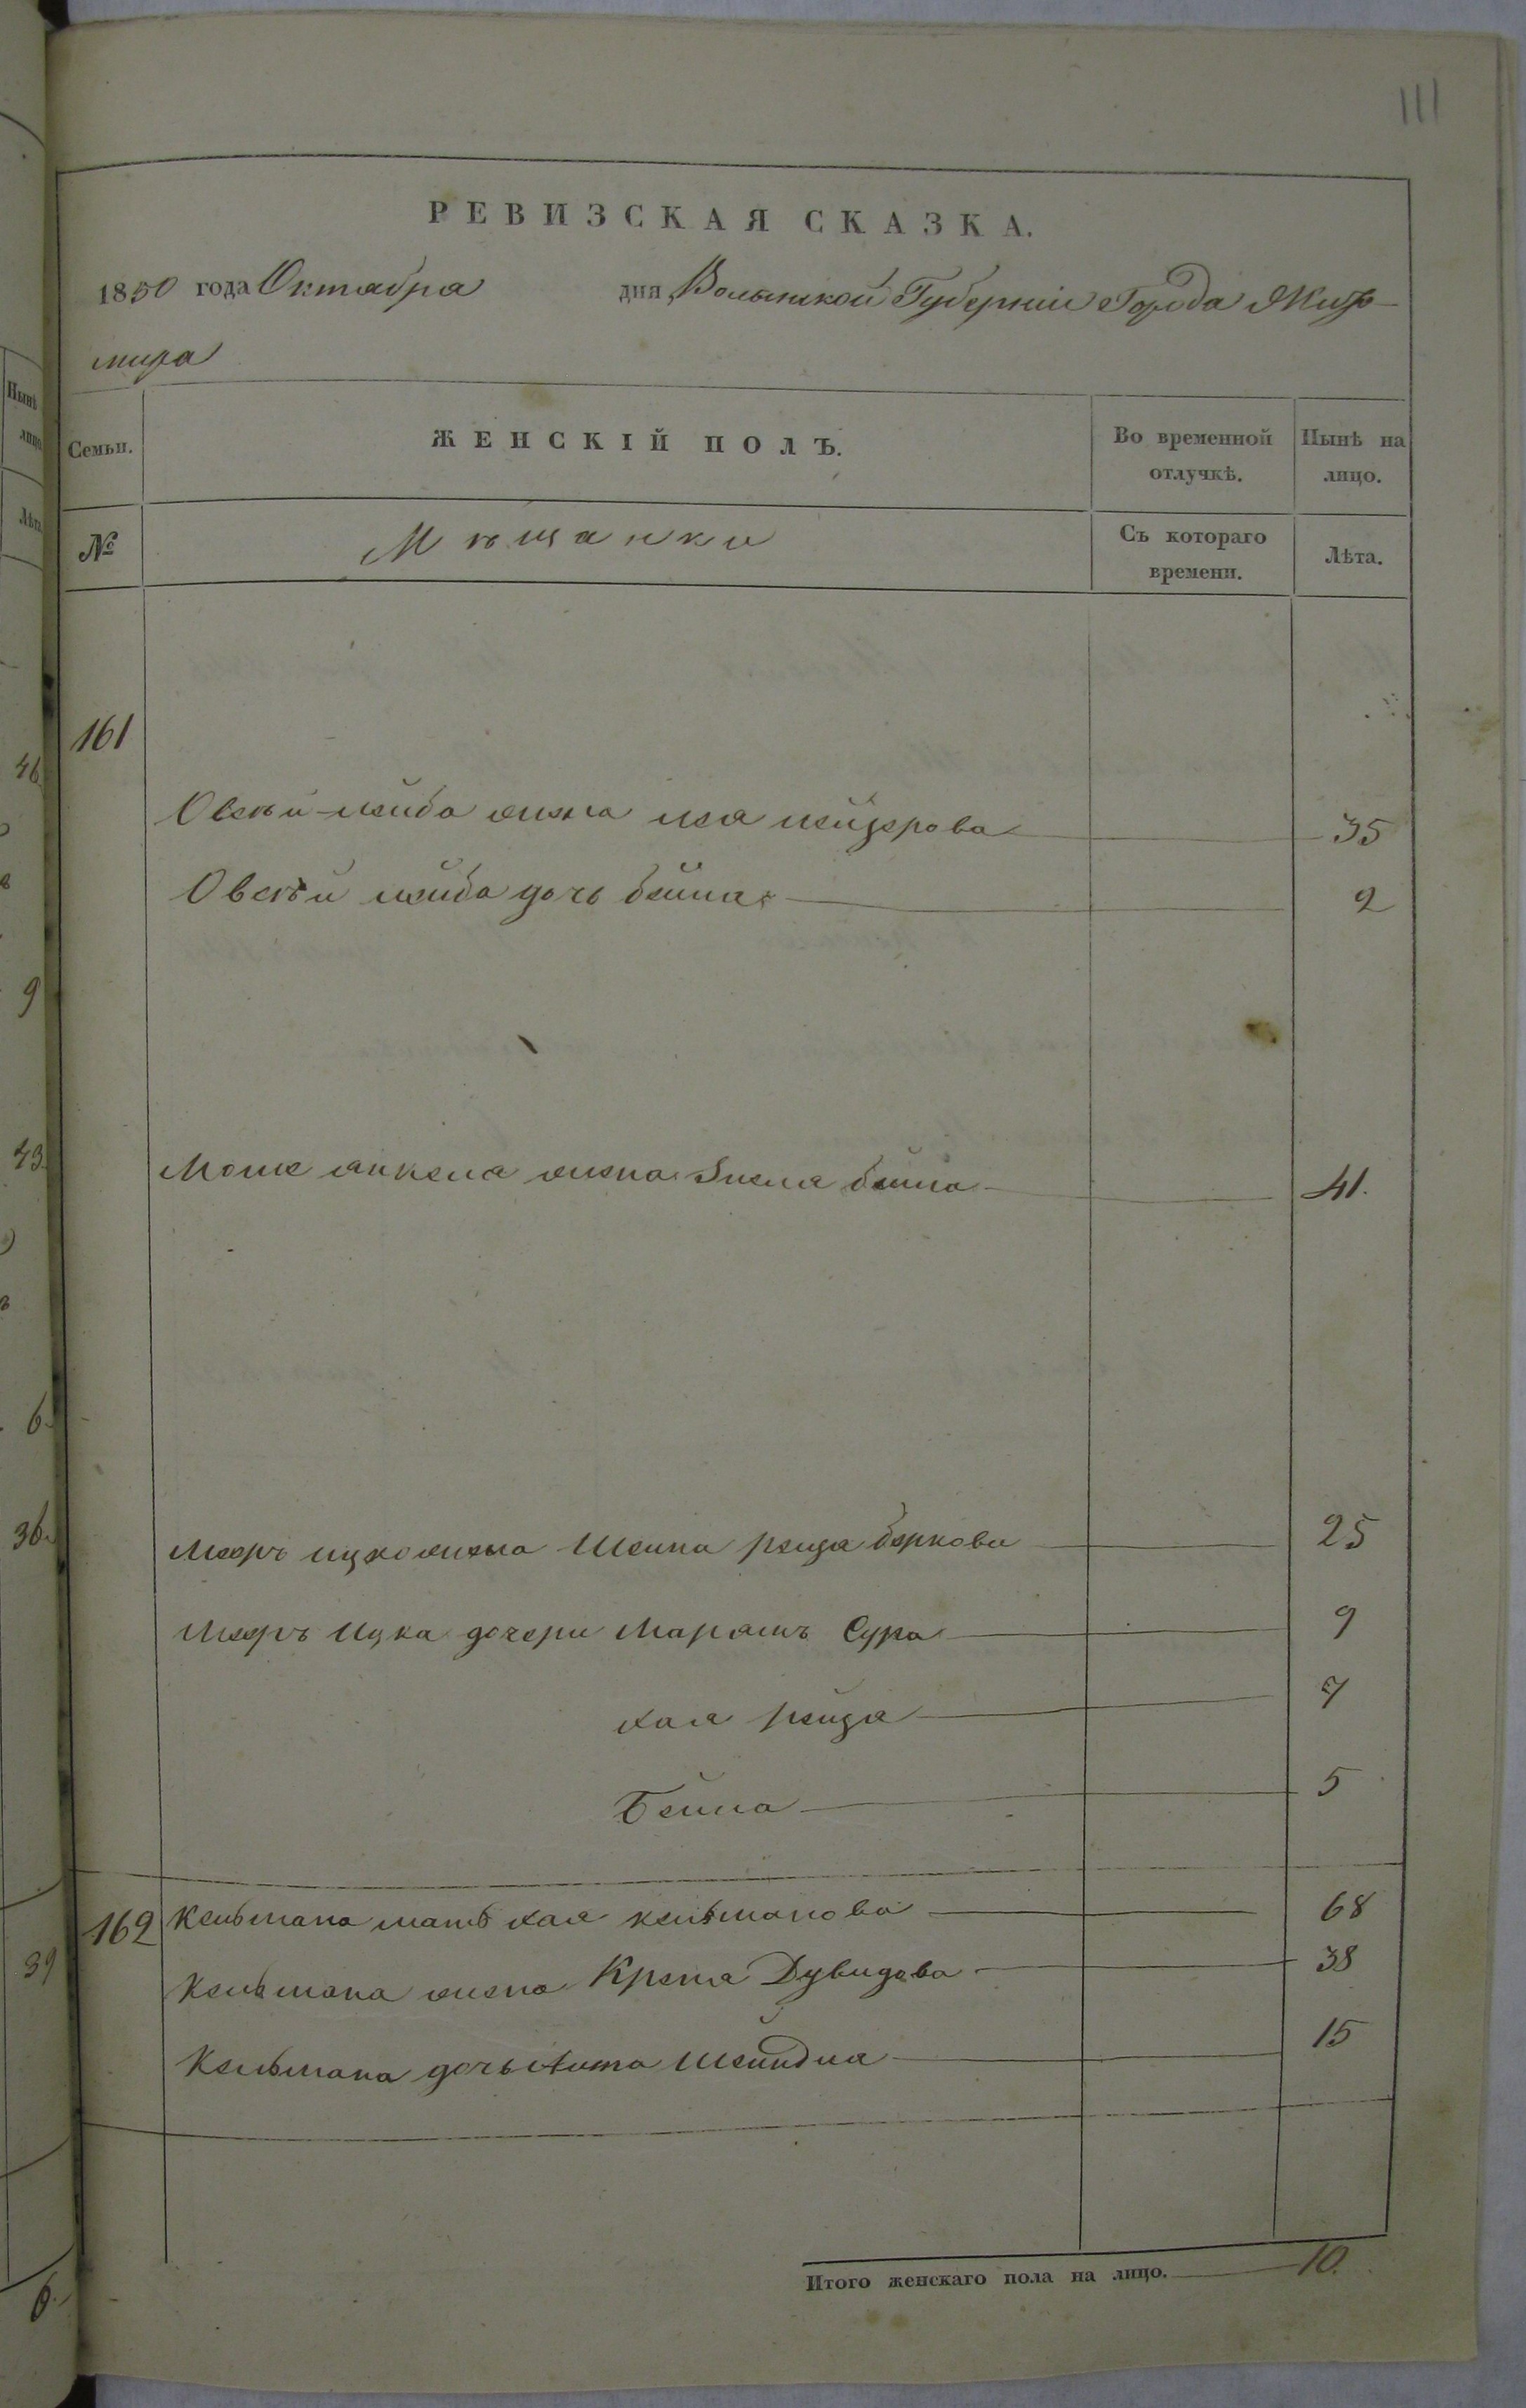 111
РЕВИЗСКАЯ СКАЗКА.
1850 года Октабра дня Волынской Губерніи Города Жито-
мира
Семьи. ЖЕНСКІЙ ПОЛЪ. Во временной отлучкѣ. Нынѣ на лицо.
№ Мѣщанки Съ котораго времени. Лѣта.
161
Овсѣй лейба жена лея лейзерова 35
Овсѣй лейба дочь бейла 2
Мошк янкеля жена Знеля бейла 41.
Мееръ ицко жена Шейна рейза беркова 25
Мееръ Ицка дочери Марямъ Сура 9
хая рейза 7
Бейла 5
162 Кельмана мать хая кельманова 68
Кельмана жена Крейза Дувидова 38
Кельмана дочь Аита Шейндля 15
Итого женскаго пола на лицо. 10.